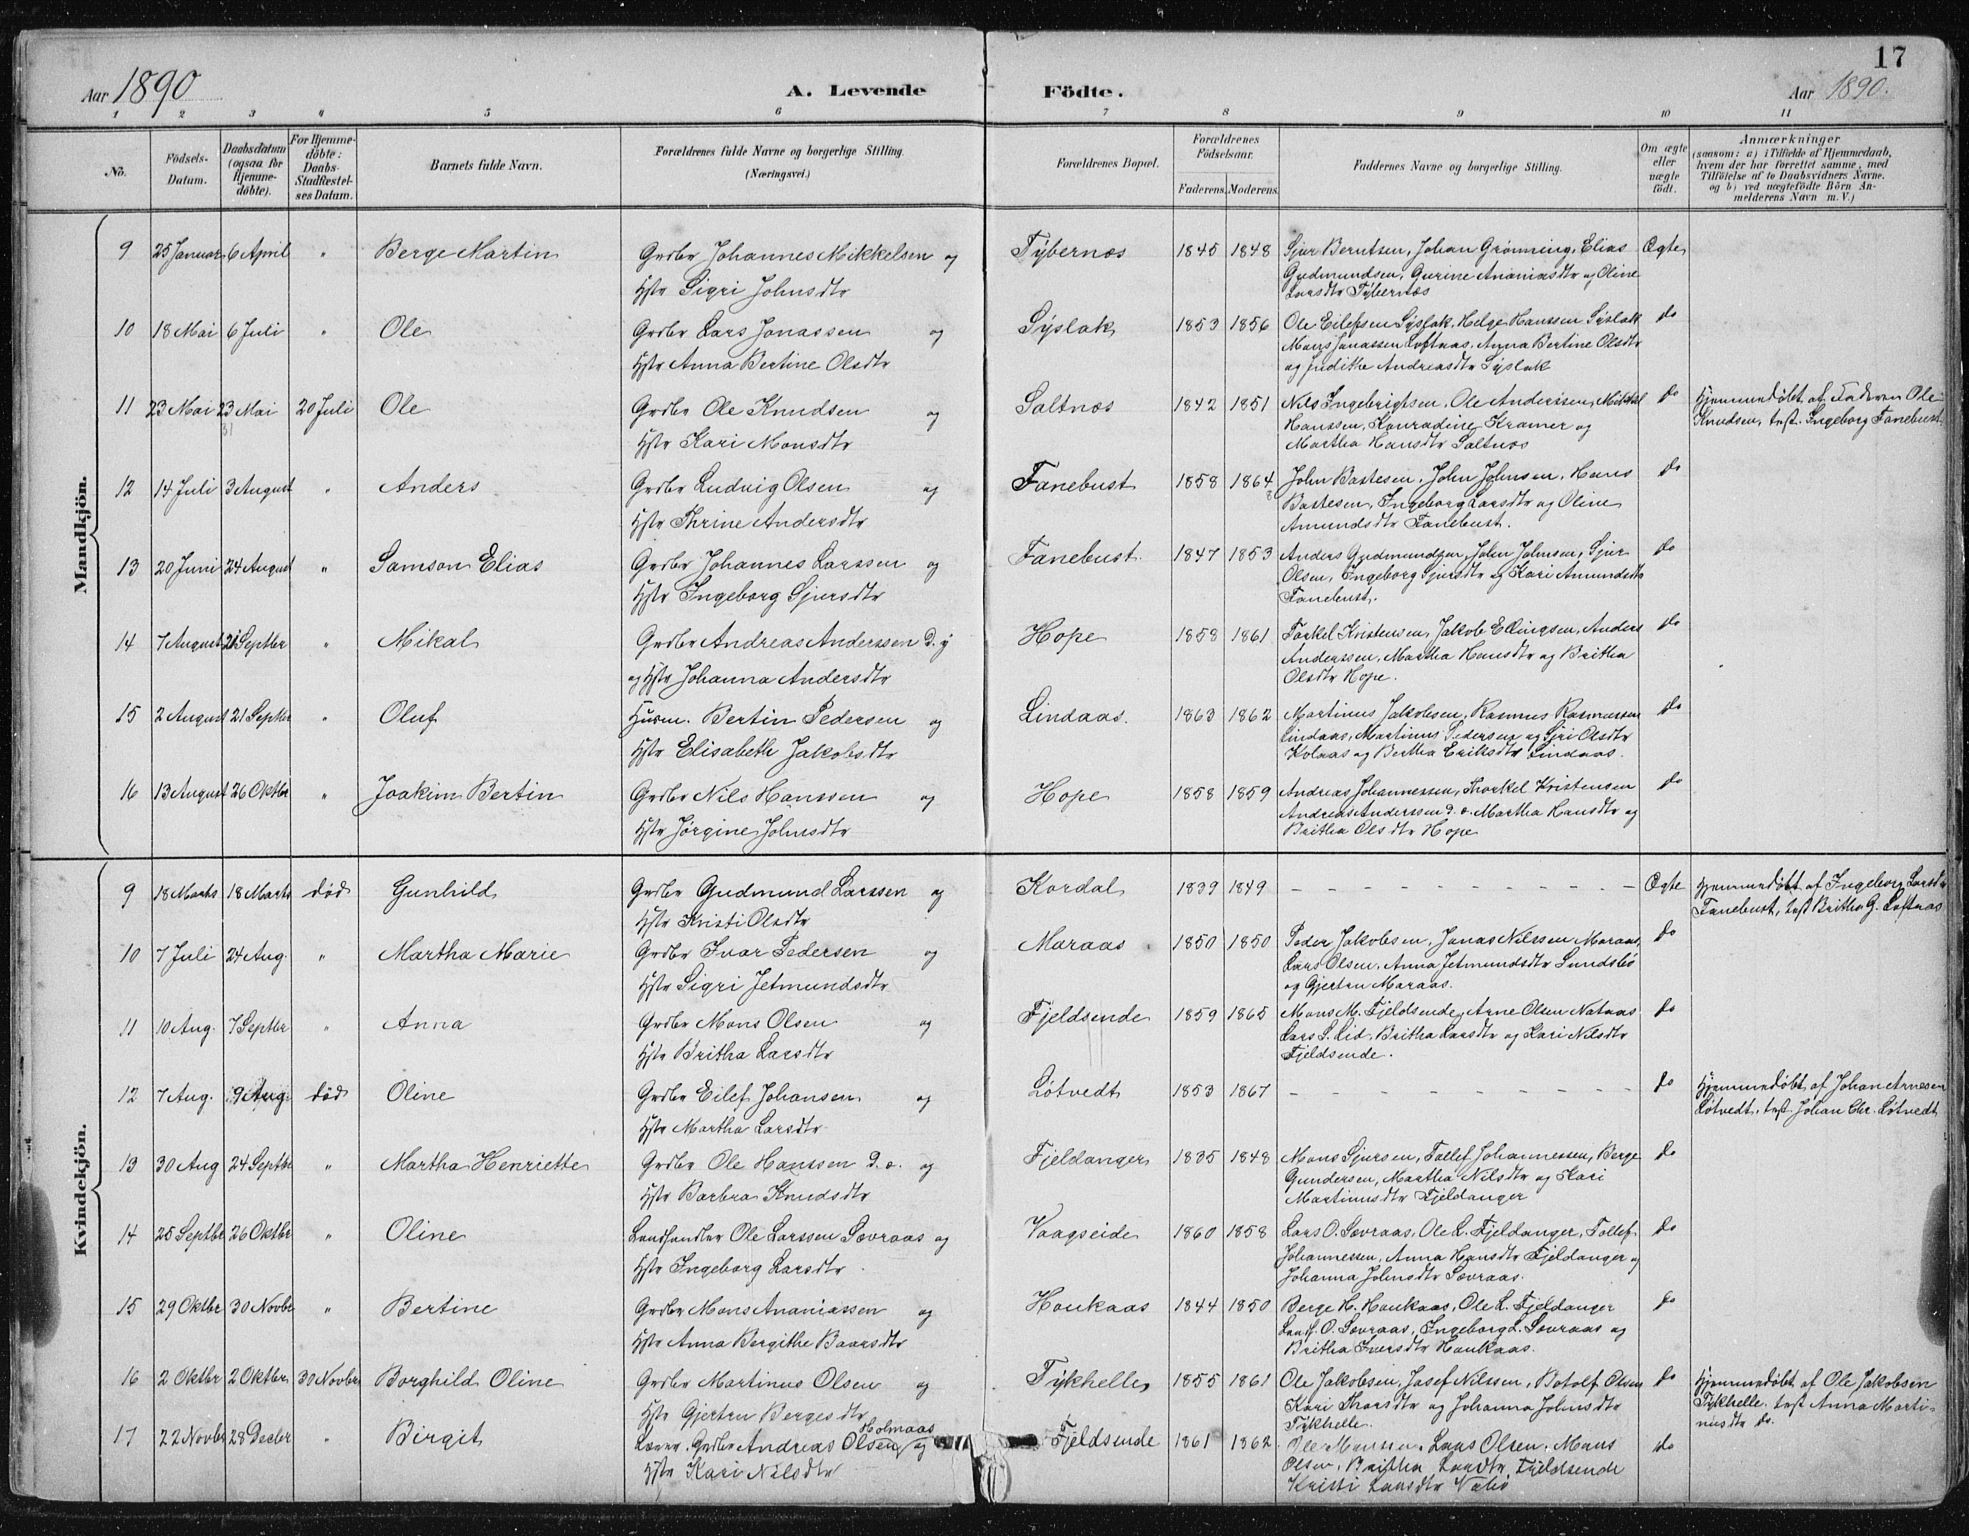 17
Aar 1890
A. Levende
Födte.
Aar 1890.
1 2 3 4 5 6 7 8 9 10 11
No.
Födsels-
Datum.
Daabsdatum
(ogsaa for
Hjemme-
döbte).
For Hjemme-
döbte:
Daabs-
Stadfæstel-
ses Datum.
Barnets fulde Navn.
Forældrenes fulde Navne og borgerlige Stilling.
(Næringsvei.)
Forældrenes Bopæl.
Forældrenes
Födselsaar.
Faderens. Moderens.
Faddernes Navne og borgerlige Stilling.
Om ægte
eller
uægte
födt.
Anmærkninger
(saasom: a) i Tilfælde af Hjemmedaab,
hvem der har forrettet samme, med
Tilföielse af to Daabsvidners Navne.
og b) ved uægtefödte Börn An-
melderens Navn m. V.)
Mandkjön.
9 25 Januar 6 April " Berge Martin Grdbr Johannes Mikkelsen og Tybernæs 1845 1848 Sjur Berntsen, Johan Grønning, Elias Ægte
Hstr Sigri Johnsdtr Gudmundsen, Gurine Ananiasdtr og Oline
Larsdtr Tybernæs
10 18 Mai 6 Juli " Ole Grdbr Lars Jonassen og Syslak 1853 1856 Ole Eilefsen Syslak, Helge Hanssen Syslak do
Hstr Anna Bertine Olsdtr Mons Jonassen Loftaas, Anna Bertine Olsdtr
og Judithe Andreasdtr Syslak
11 23 Mai 23 Mai 20 Juli Ole Grdbr Ole Knudsen og Saltnæs 1842 1851 Nils Ingebrigtsen, Ole Anderssen, Mikkel do Hjemmedøbt af Faderen Ole
31 Hstr Kari Monsdtr Hanssen, Konradine Kramer og Knudsen, test. Ingeborg Fanebust
Martha Hansdtr Saltnæs
12 14 Juli 3 August " Anders Grdbr Ludvig Olsen og Fanebust 1858 1864 John Bastesen, John Johnsen, Hans do
Hstr Thrine Andersdtr Bastesen, Ingeborg Larsdtr og Oline
Amundsdtr Fanebust.
13 20 Juni 24 August " Samson Elias Grdbr Johannes Larssen og Fanebust 1847 1853 Anders Gudmundsen, John Johnsen, Sjur do
Hstr Ingeborg Sjursdtr Olsen, Ingeborg Sjursdtr og Kari Amundsdtr
Fanebust.
14 7 August 21 Septbr " Mikal Grdbr Andreas Anderssen d. y Hope 1859 1861 Torkel Kristensen, Jakob Ellingsen, Anders do
og Hstr Johanna Andersdtr Anderssen, Martha Hansdtr og Britha
Olsdtr Hope.
15 2 August 21 Septbr " Oluf Husm. Bertin Pedersen og Lindaas. 1863 1862 Martinus Jakobsen, Rasmus Rasmussen do
Hstr Elisabeth Jakobsdtr Lindaas, Martinus Pedersen og Siri Olsdtr
Kolaas og Bertha Eriksdtr Lindaas.
16 13 August 26 Oktbr " Joakim Bertin Grdbr Nils Hanssen og Hope 1858 1859 Andreas Johannessen, Thorkel Kristensen do
Hstr Jørgine Johnsdtr Andreas Anderssen d. æ. Martha Hansdtr og
Britha Olsdtr Hope
Kvindekjön.
9 18 Marts 18 Marts død Gunhild Grdbr Gudmund Larssen og Kordal 1839 1849 Ægte Hjemmedøbt af Ingeborg Larsdtr
Hstr Kristi Olsdtr Fanebust, test Britha G. Loftaas
10 7 Juli 24 Aug. " Martha Marie Grdbr Ivar Pedersen og Maraas 1850 1850 Peder Jakobsen, Jonas Nilssen Maraas, do
Hstr Sigri Jetmundsdtr Lars Olsen, Anna Jetmundsdtr Sundsbø
og Gjertru Maraas.
11 10 Aug. 7 Septbr " Anna Grdbr Mons Olsen og Fjeldsende 1859 1865 Mons M. Fjeldsende, Arne Olsen Nataas do
Hstr Britha Larsdtr Lars S. Lid, Britha Larsdtr og Kari Nilsdtr
Fjeldsende.
12 7 Aug. 9 Aug. død Oline Grdbr Eilef Johansen og Løtvedt 1853 1867 do Hjemmedøbt af Johan Arnesen
Hstr Martha Larsdtr Løtvedt, test. Johan Chr. Løtvedt
13 30 Aug 24 Septbr " Martha Henriette Grdbr Ole Hanssen d. æ. og Fjeldanger 1835 1848 Mons Sjursen, Tollef Johannessen, Berge do
Hstr Barbra Knudsdtr Gundersen, Martha Nilsdtr og Kari
Martinusdtr Fjeldanger
14 25 Septbr 26 Oktbr " Oline Landhandler Ole Larssen Sævraas og Vaagseide 1860 1858 Lars O. Sævraas, Ole L. Fjeldanger, Tollef do
Hstr Ingeborg Larsdtr Johannessen, Anna Hansdtr Fjeldanger og
Johanna Johnsdtr Sævraas.
15 29 Oktbr 30 Novbr " Bertine Grdbr Mons Ananiassen og Haukaas 1844 1850 Berge H. Haukaas, Ole L. Fjeldanger do
Hstr Anna Bergithe Baarsdtr Landh. O. Sævraas, Ingeborg L. Sævraas og
Britha Iversdtr Haukaas.
16 2 Oktbr 2 Oktbr 30 Novbr Borghild Oline Grdbr Martinus Olsen og Tykhelle 1855 1861 Ole Jakobsen, Josef Nilssen, Botolf Olsen do Hjemmedøbt af Ole Jakobsen
Hstr Gjertru Bergesdtr Kari Thorsdtr og Johanna Johnsdtr Tykhelle. test Anna Marti-
Tykhelle. nusdtr do.
17 22 Novbr 28 Decbr " Birgit Lærer, Grdbr Andreas Olsen Holmaas og Fjeldsende 1861 1862 Ole Monssen, Lars Olsen, Mons do
Hstr Kari Nilsdtr Olsen, Britha Larsdtr, Fjeldsende
Kristi Larsdtr